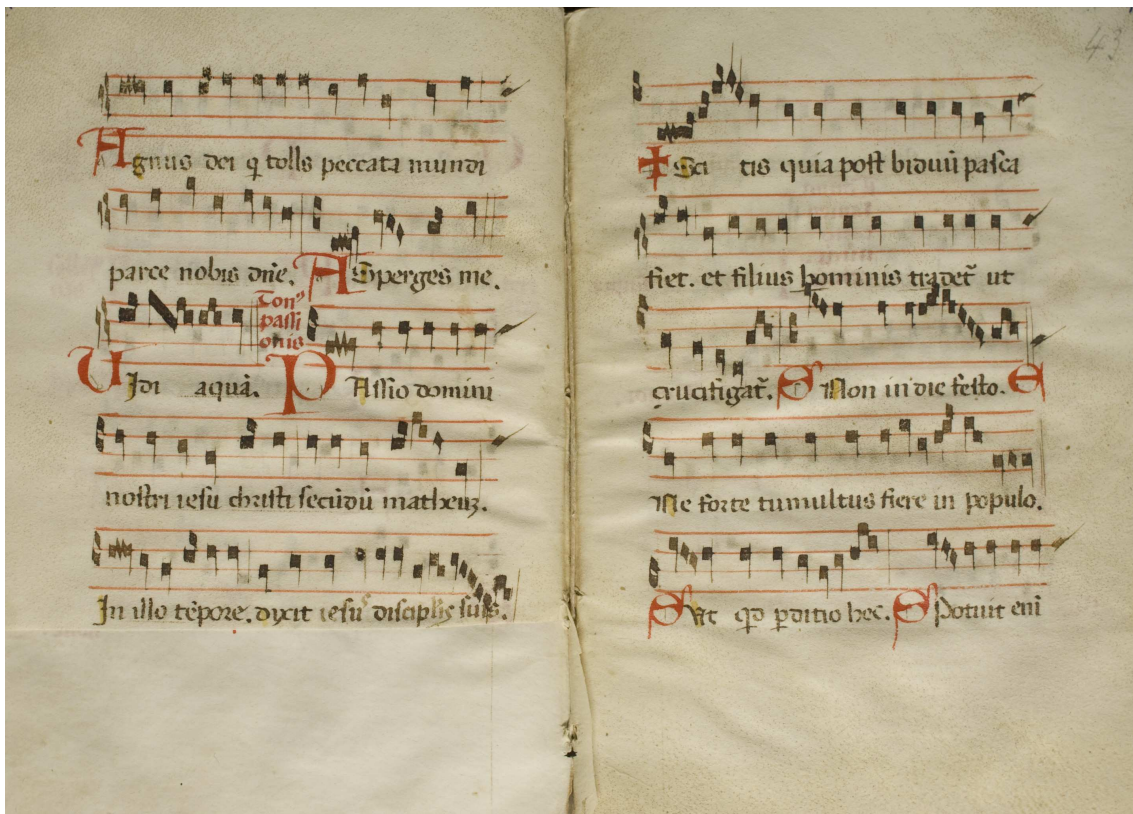 Agnus dei q tolls peccata mundi
parce nobis dñe. ASperges me.
Ton9
passi
onis
Uidi aquã. PAssio domini
nostri iesu christi secũdũ matheuz.
In illo tẽpore. dixit iesus disciplis suis.
43
✠ Sci tis quia post biduũ pasca
fiet. et filius hominis tradet᷑ ut
crucifigat᷑. S Non in die festo. S
Ne forte tumultus fiere in populo.
S Ut qd pditio hec. S Potuit eni